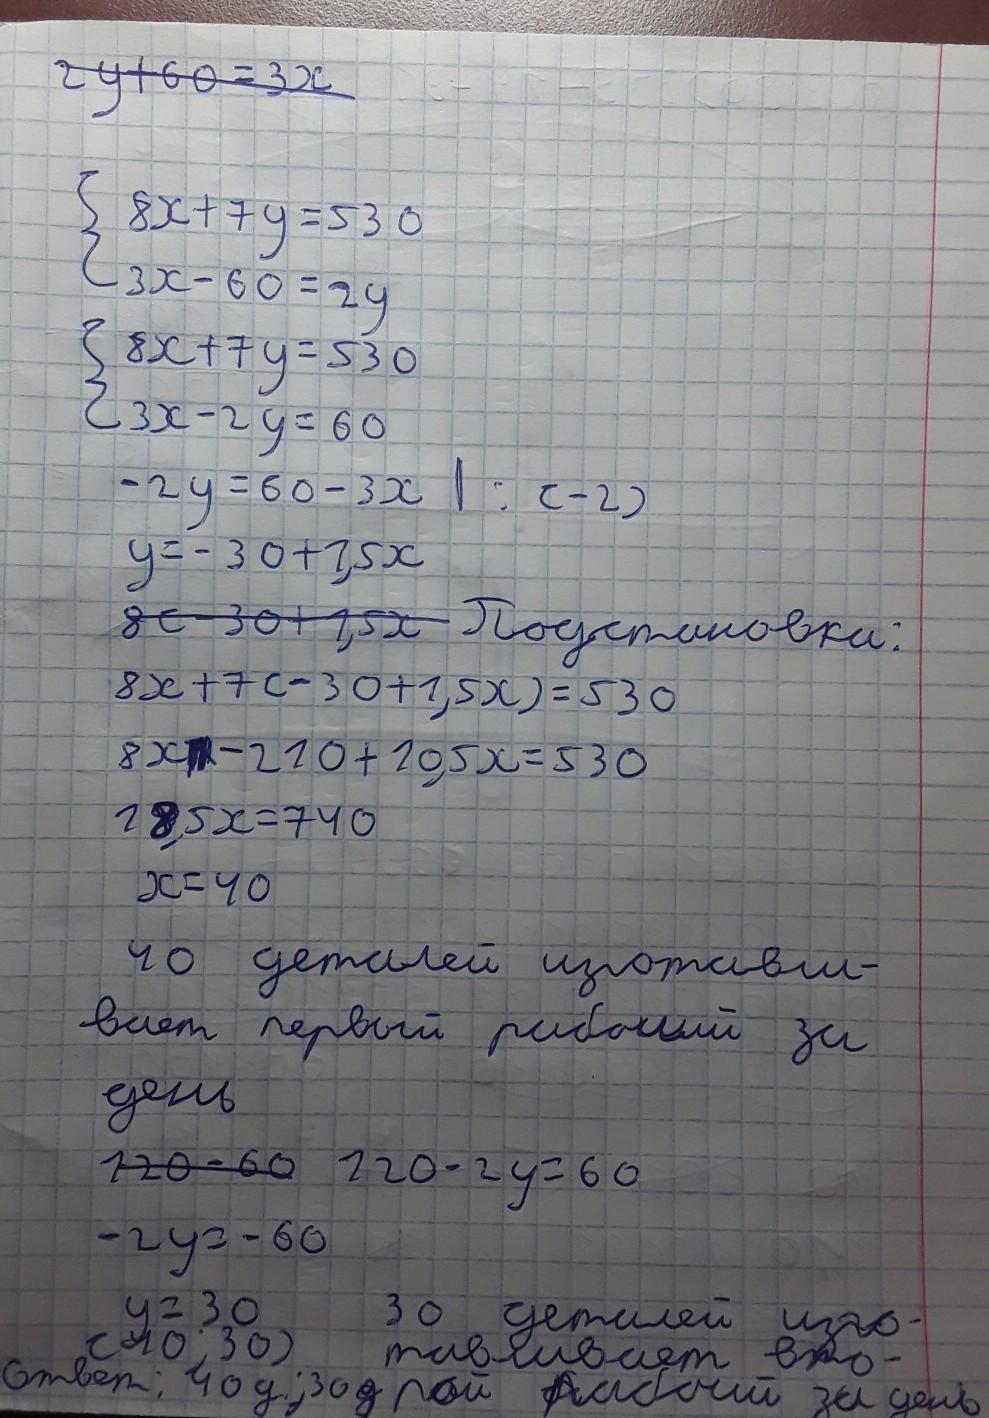 2y+60=3x
8x+7y=530
3x-60=2y
8x+7y=530
3x-2y=60
-2y=60-3x | : (-2)
y=-30+1,5x
8(-30+1,5x Подстановка:
8x+7(-30+1,5x)=530
8x-210+10,5x=530
18,5x=740
x=40
40 деталей изготавли-
вает первый рабочий за
день
120-60 120-2y=60
-2y=-60
y=30 30 деталей изго-
(40;30) тавливает вто-
Ответ: 40д.;30д рой рабочий за день